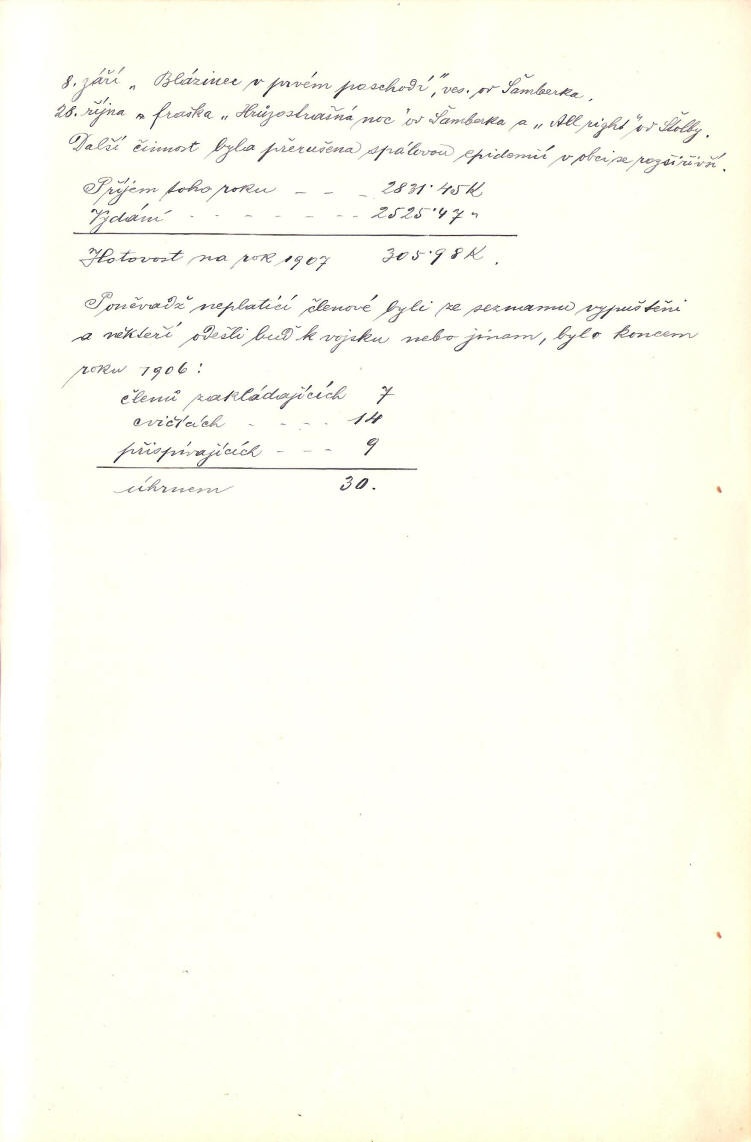 8. září „ Blázinec v prvém poschodí", ves. od Šamberka.
28. října „ fraška „Hrůzostrašná noc" od Šamberka a „All right" od Štolby.
Další činnost byla přerušena spálovou epidemií v obci se rozšířivší.
Příjem toho roku - - - 2831·45 K
Vydání - - - - - - - 2525·47 „
Hotovost na rok 1907 305·98 K.
Poněvadž neplatící členové byli ze seznamu vypuštěni
a někteří odešli buď k vojsku nebo jinam, bylo koncem
roku 1906:
členů zakládajících 7
cvičících - - - - 14
přispívajících - - - 9
úhrnem 30.